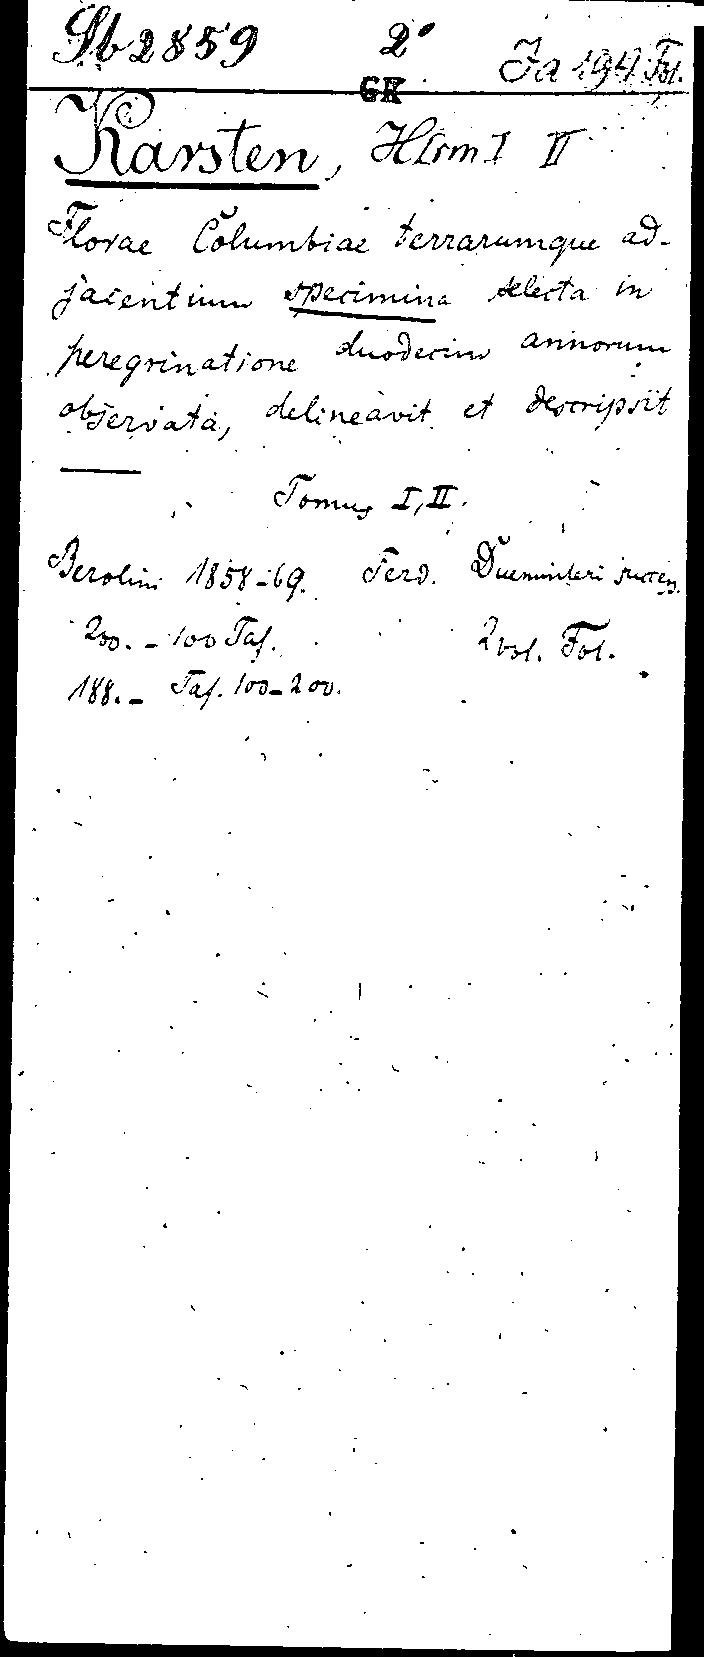 Sb 2859 2° Ja 194 Fol.
GK
Karsten, Hrm I II
Florae Columbiae terrarumque ad-
jacentium specimina selecta in
peregrinatione duodecim annorum
observata, delineavit et descripsit
Tomus I, II.
Berolini 1858-69. Ferd. Duemmleri succes.
200. - 100 Taf. 2 vol. Fol.
188. - Taf. 100-200.